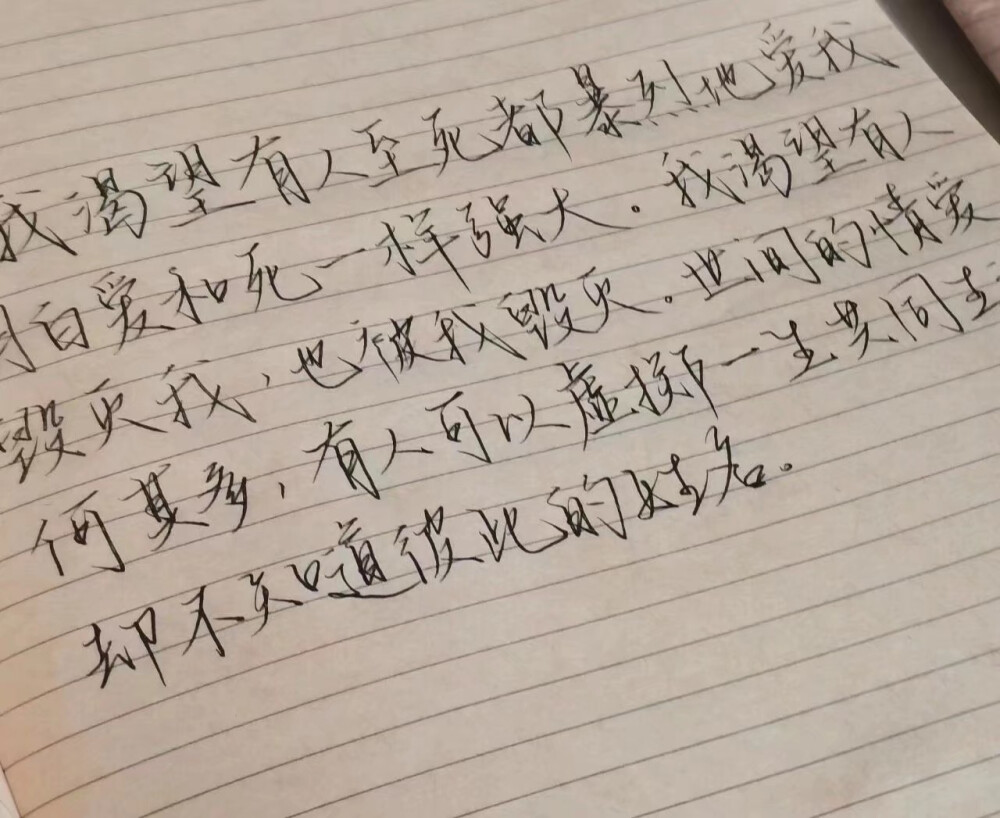 我渴望有人至死都暴烈地爱我
明白爱和死一样强大。我渴望有人
毁灭我，也被我毁灭。世间的情爱
何其多，有人可以虚掷一生共同生
却不知道彼此的姓名。